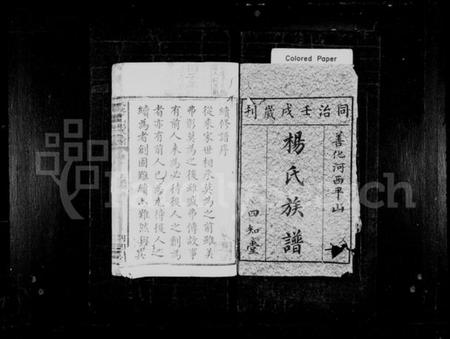 Colored Paper
同治壬戌歲刊
善化河西平山
楊氏族譜
四知堂
續修譜序
從來家世相承莫為之前雖美
弗彰莫為之後雖盛弗傳故事
有前人未為必待後人之創為
者亦有前人已為尤待後人之
續為者創固難續亦難然